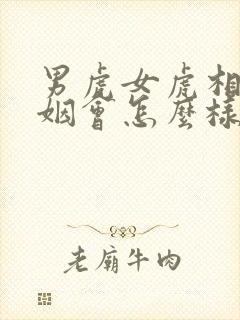 男虎女虎相
姻會怎麼樣
老廟牛肉